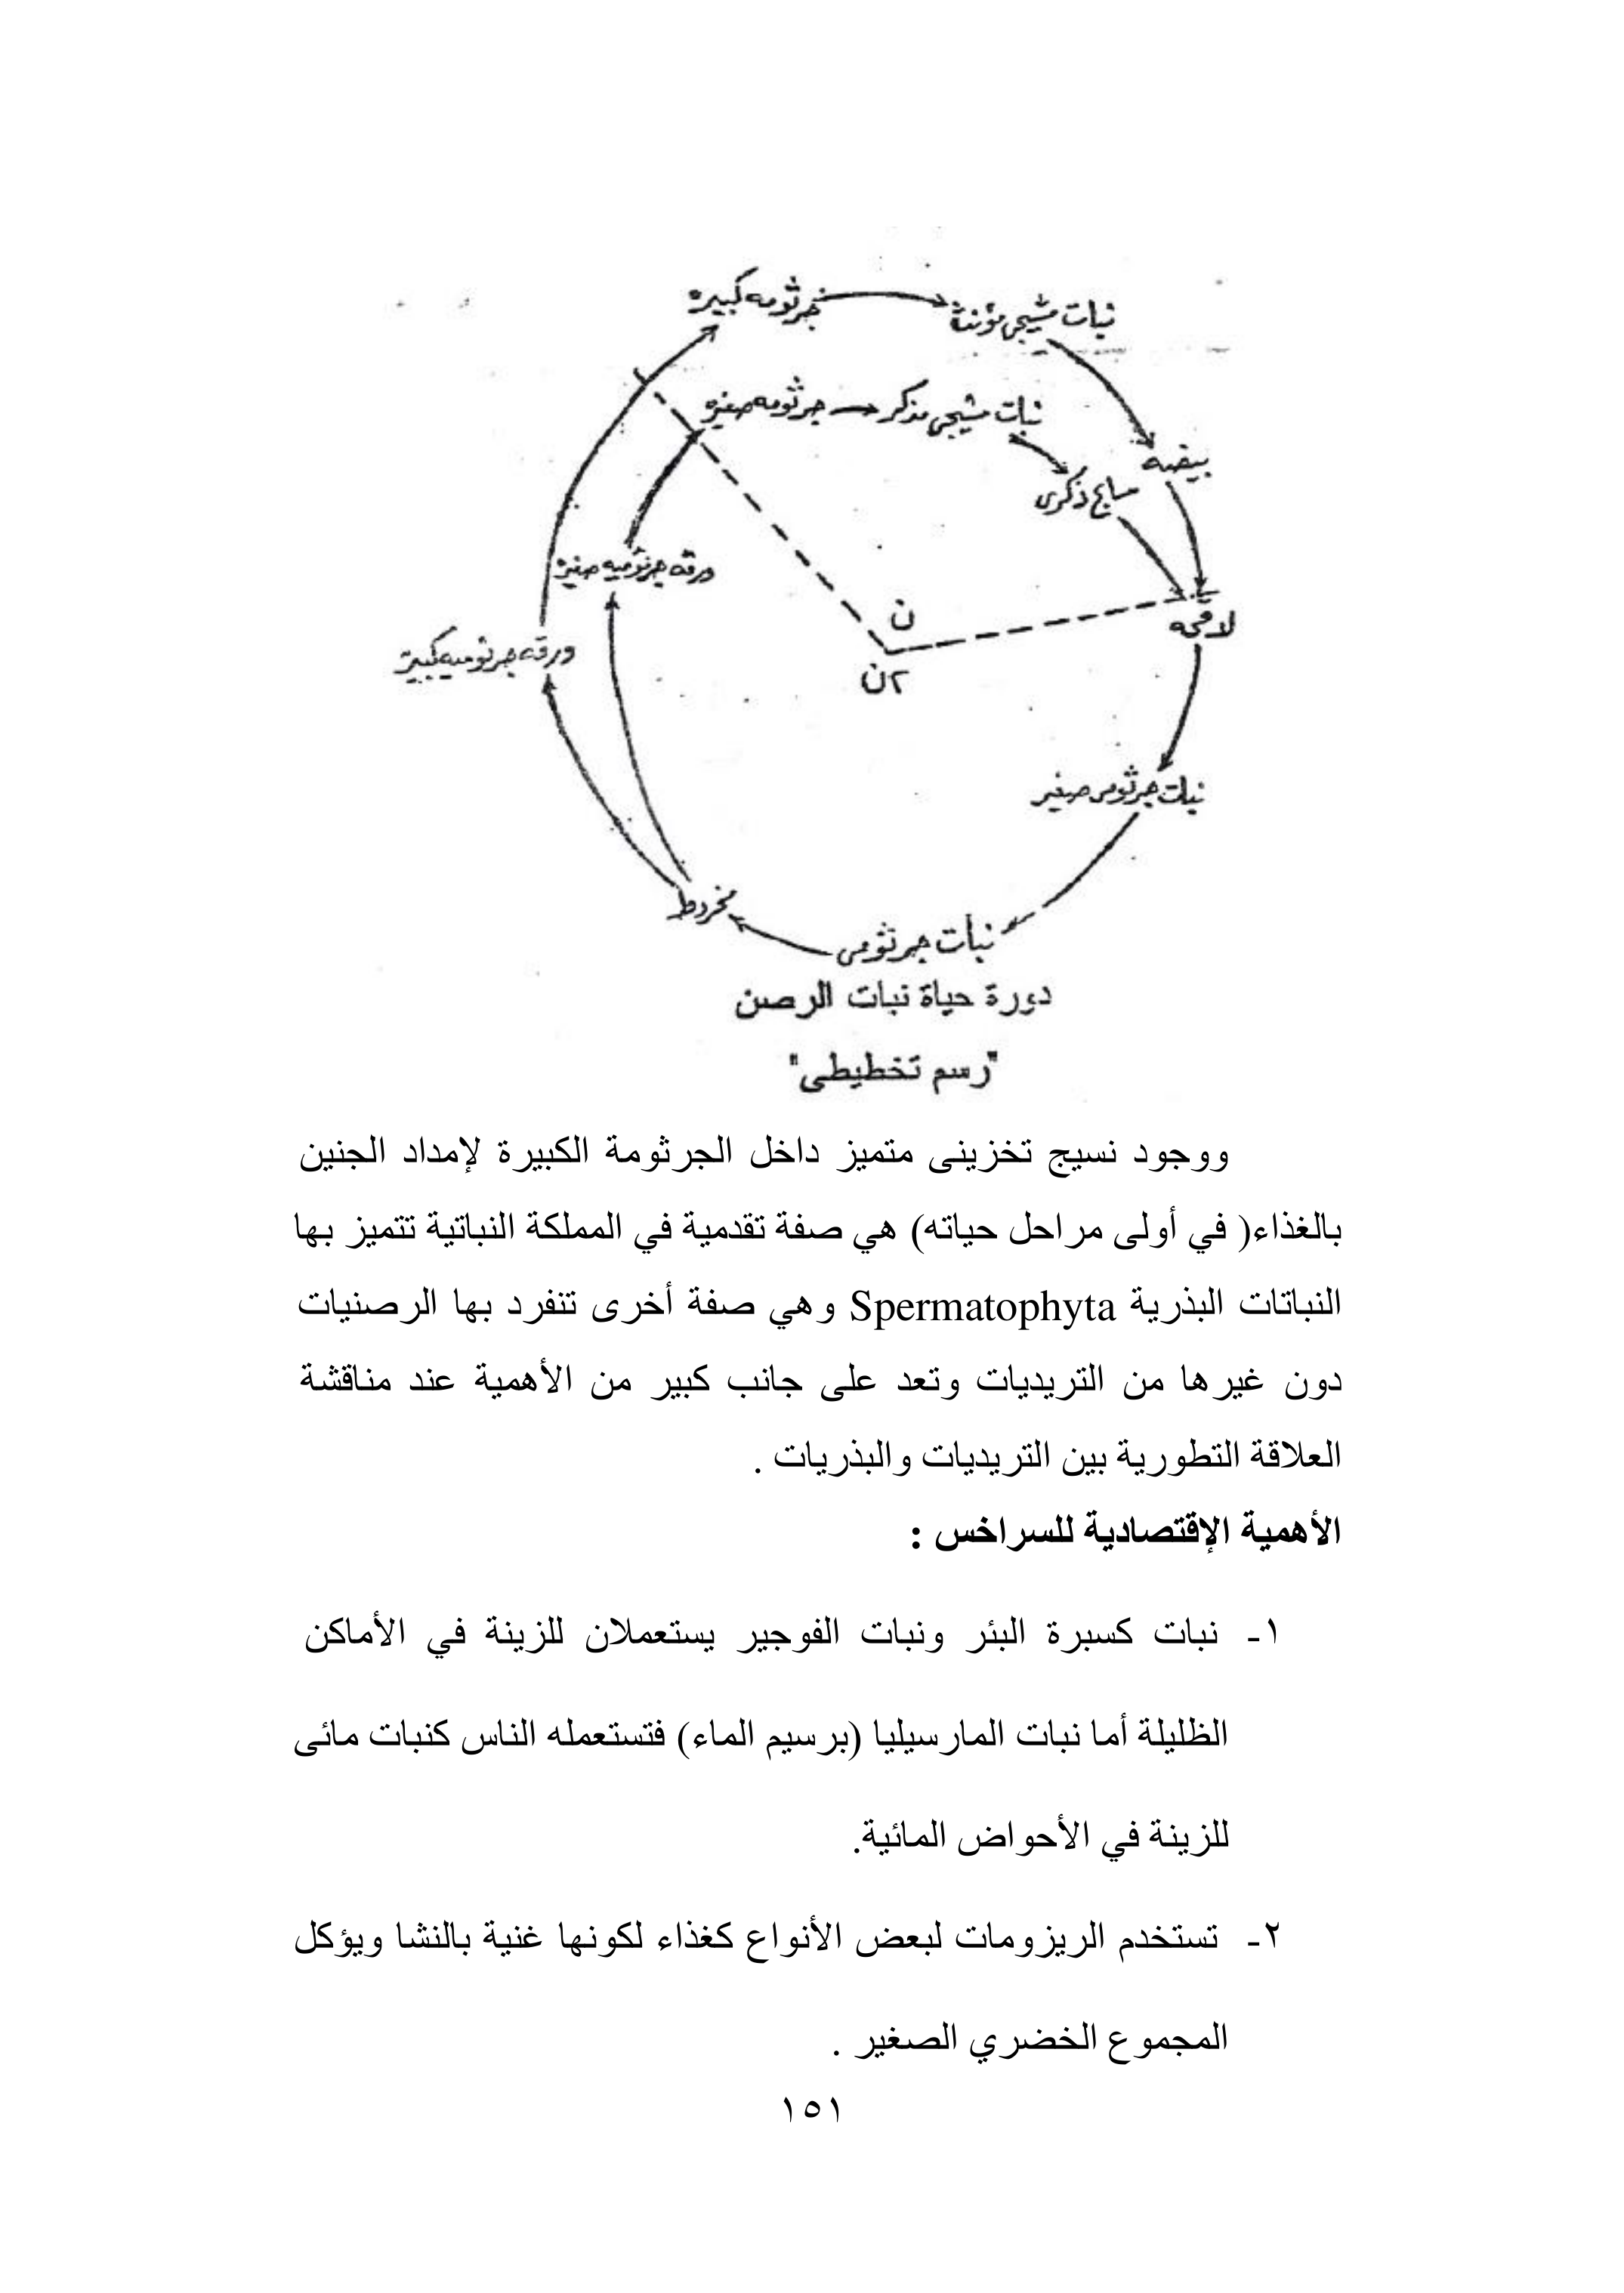 جرثومه كبيره
نبات مشيجى مؤنث
جرثومه صغيره
نبات مشيجى مذكر
بيضه
سابح ذكرى
ورقه جرثوميه صغيره
ن
لاقحه
ورقه جرثوميه كبيرة
٢ن
نبات جرثومى صغير
مخروط
نبات جرثومى
دورة حياة نبات الرصن
"رسم تخطيطى"
ووجود نسيج تخزينى متميز داخل الجرثومة الكبيرة لإمداد الجنين
بالغذاء( في أولى مراحل حياته) هي صفة تقدمية في المملكة النباتية تتميز بها
النباتات البذرية Spermatophyta وهي صفة أخرى تنفرد بها الرصنيات
دون غيرها من التريديات وتعد على جانب كبير من الأهمية عند مناقشة
العلاقة التطورية بين التريديات والبذريات .
الأهمية الإقتصادية للسراخس :
١- نبات كسبرة البئر ونبات الفوجير يستعملان للزينة في الأماكن
الظليلة أما نبات المارسيليا (برسيم الماء) فتستعمله الناس كنبات مائى
للزينة في الأحواض المائية.
٢- تستخدم الريزومات لبعض الأنواع كغذاء لكونها غنية بالنشا ويؤكل
المجموع الخضري الصغير .
١٥١